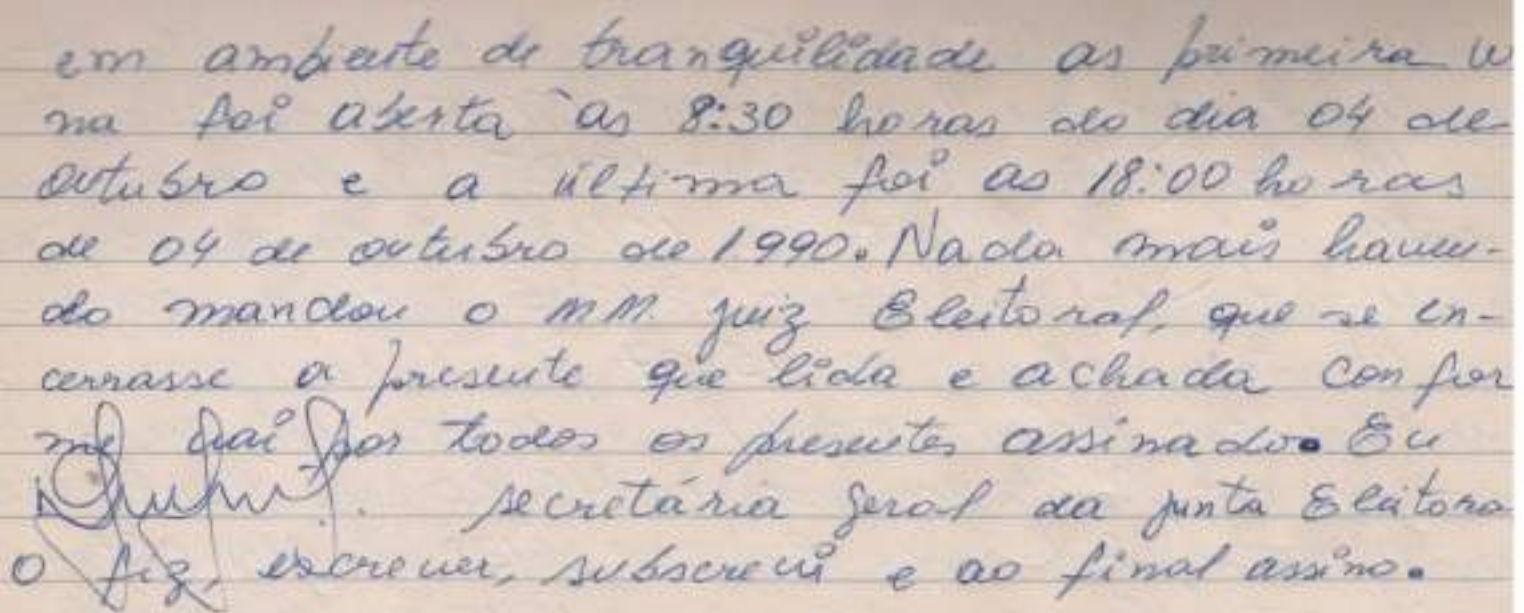 em ambiente de tranquilidade as primeira ur
na foi aberta às 8:30 horas do dia 04 de
outubro e a última foi as 18:00 horas
de 04 de outubro de 1990. Nada mais haven-
do mandou o MM. juiz Eleitoral, que se en-
cerrasse a presente que lida e achada confor
me vai por todos os presentes assinado. Eu
secretária geral da junta Eleitora
o fiz, escrever, subscrevi e ao final assino.